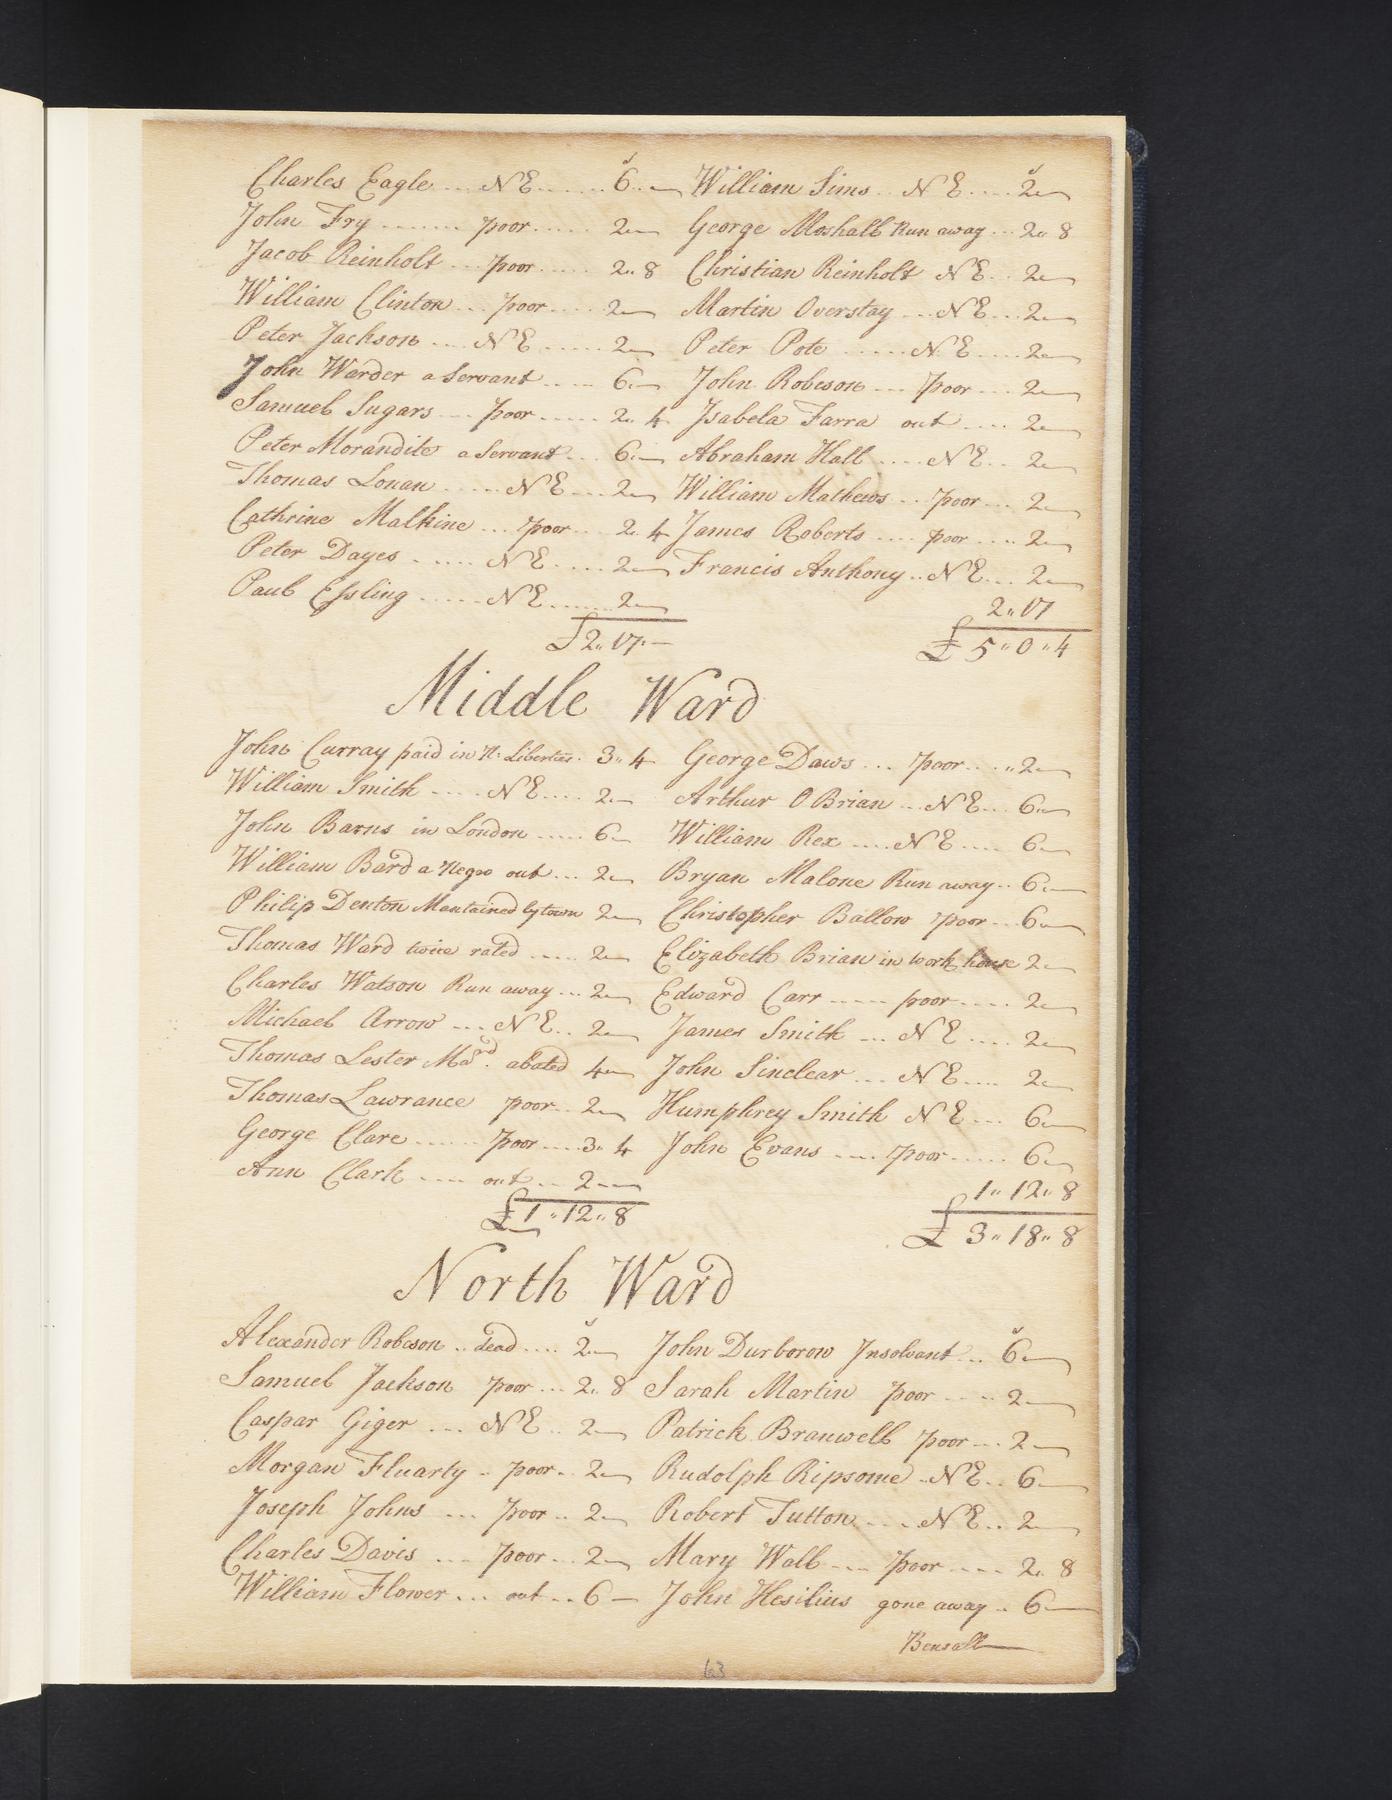 s s
Charles Eagle .... N E ....... 6 .. — William Sims .. N E .... 2 —
John Fry ........ poor ..... 2 — George Moshall Run away ... 2 " 8
Jacob Reinholt ... poor ..... 2 " 8 Christian Reinholt N E ... 2 —
William Clinton ... poor .... 2 — Martin Overstay .... N E ... 2 —
Peter Jackson .... N E ...... 2 — Peter Pote ...... N E .... 2 —
John Warder a Servant ..... 6 — John Robeson .... poor .... 2 —
Samuel Sugars .... poor ...... 2 " 4 Jsabela Farra out ..... 2 —
Peter Morandite a Servant ... 6 — Abraham Hall ..... N E .. 2 —
Thomas Lonan ...... N E .... 2 — William Mathews ... poor ... 2 —
Cathrine Malkine ... poor ... 2 " 4 James Roberts .... poor .... 2 —
Peter Dayes ...... N E ..... 2 — Francis Anthony .. N E ... 2 —
Paul Essling ...... N E ...... 2 — 2 " 17
£ 2 " 17 " — £ 5 " 0 " 4
Middle Ward
John Curray paid in N: Liberties . 3 " 4 George Daws ... poor .... " 2 —
William Smith ..... N E .... 2 — Arthur O Brian ... N E ... 6 —
John Barns in London ..... 6 — William Rex .... N E .... 6 —
William Bard a Negro out ... 2 — Bryan Malone Run away .. 6 —
Philip Denton Mantained by town 2 — Christopher Ballow poor ... 6 —
Thomas Ward twice rated ..... 2 — Elizabeth Brian in work house 2 —
Charles Watson Run away ... 2 — Edward Carr ..... poor .... 2 —
Michael Arrow .... N E .. 2 — James Smith ... N E .... 2 —
Thomas Lester abated 4 — John Sinclear ... N E .... 2 —
Thomas Lawrance poor .. 2 — Humphrey Smith N E ... 6 —
George Clare ....... poor .... 3 " 4 John Evans ..... poor ...... 6 —
Ann Clark ..... out ... 2 — 1 " 12 " 8
£ 1 " 12 " 8 £ 3 " 18 " 8
North Ward
s s
Alexander Robeson .. dead .... 2 — John Durborow Jnsolvant ... 6 —
Samuel Jackson poor ... 2 " 8 Sarah Martin poor ..... 2 —
Caspar Giger .... N E .. 2 — Patrick Branwell poor ... 2 —
Morgan Fluarty .. poor .. 2 — Rudolph Ripsome .. N E .. 6 —
Joseph Johns .... poor .. 2 — Robert Tutton ..... N E .. 2 —
Charles Davis .... poor ... 2 — Mary Wall .... poor .... 2 " 8
William Flower ... out ... 6 — John Hesilius gone away .. 6 —
Bensall
63